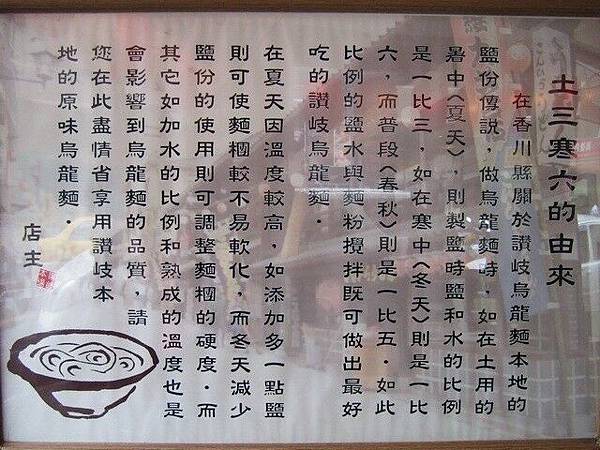 土三寒六的由來
在香川縣關於讚岐烏龍麵本地的
鹽份傳說，做烏龍麵時，如在土用的
暑中(夏天)，則製鹽時鹽和水的比例
是一比三，如在寒中(冬天)則是一比
六，而普段(春秋)則是一比五．如此
比例的鹽水與麵粉攪拌既可做出最好
吃的讚岐烏龍麵．
在夏天因溫度較高，如添加多一點鹽
則可使麵糰較不易軟化，而冬天減少
鹽份的使用則可調整麵糰的硬度．而
其它如加水的比例和熟成的溫度也是
會影響到烏龍麵的品質，請
您在此盡情省享用讚岐本
地的原味烏龍麵．
店主